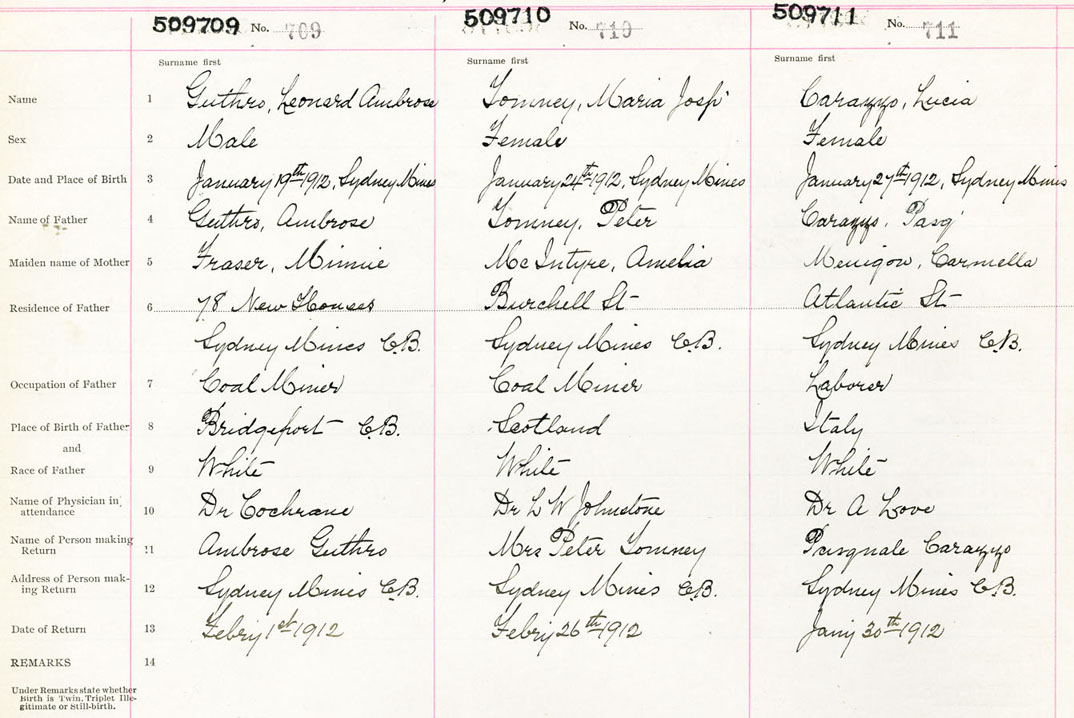 509709 No. 709 509710 No. 710 509711 No. 711
Surname first Surname first Surname first
Name 1 Guthro, Leonard Ambrose Tomney, Maria Josp' Carazzo, Lucia
Sex 2 Male Female Female
Date and Place of Birth 3 January 19th 1912, Sydney Mines January 24th 1912, Sydney Mines January 27th 1912, Sydney Mines
Name of Father 4 Guthro, Ambrose Tomney, Peter Carazzo, Pasq'
Maiden name of Mother 5 Fraser, Minnie McIntyre, Amelia Menigon, Carmella
Residence of Father 6 78 New Houses Burchell St Atlantic St
Sydney Mines C.B. Sydney Mines C.B. Sydney Mines C.B.
Occupation of Father 7 Coal Miner Coal Miner Laborer
Place of Birth of Father 8 Bridgeport C.B. Scotland Italy
and
Race of Father 9 White White White
Name of Physician in attendance 10 Dr Cochrane Dr L W Johnstone Dr A Love
Name of Person making Return 11 Ambrose Guthro Mrs Peter Tomney Pasquale Carazzo
Address of Person mak-
ing Return 12 Sydney Mines C.B. Sydney Mines C.B. Sydney Mines C.B.
Date of Return 13 Febry 1st 1912 Febry 26th 1912 Jany 30th 1912
REMARKS 14
Under Remarks state whether
Birth is Twin, Triplet Ille-
gitimate or Still-birth.